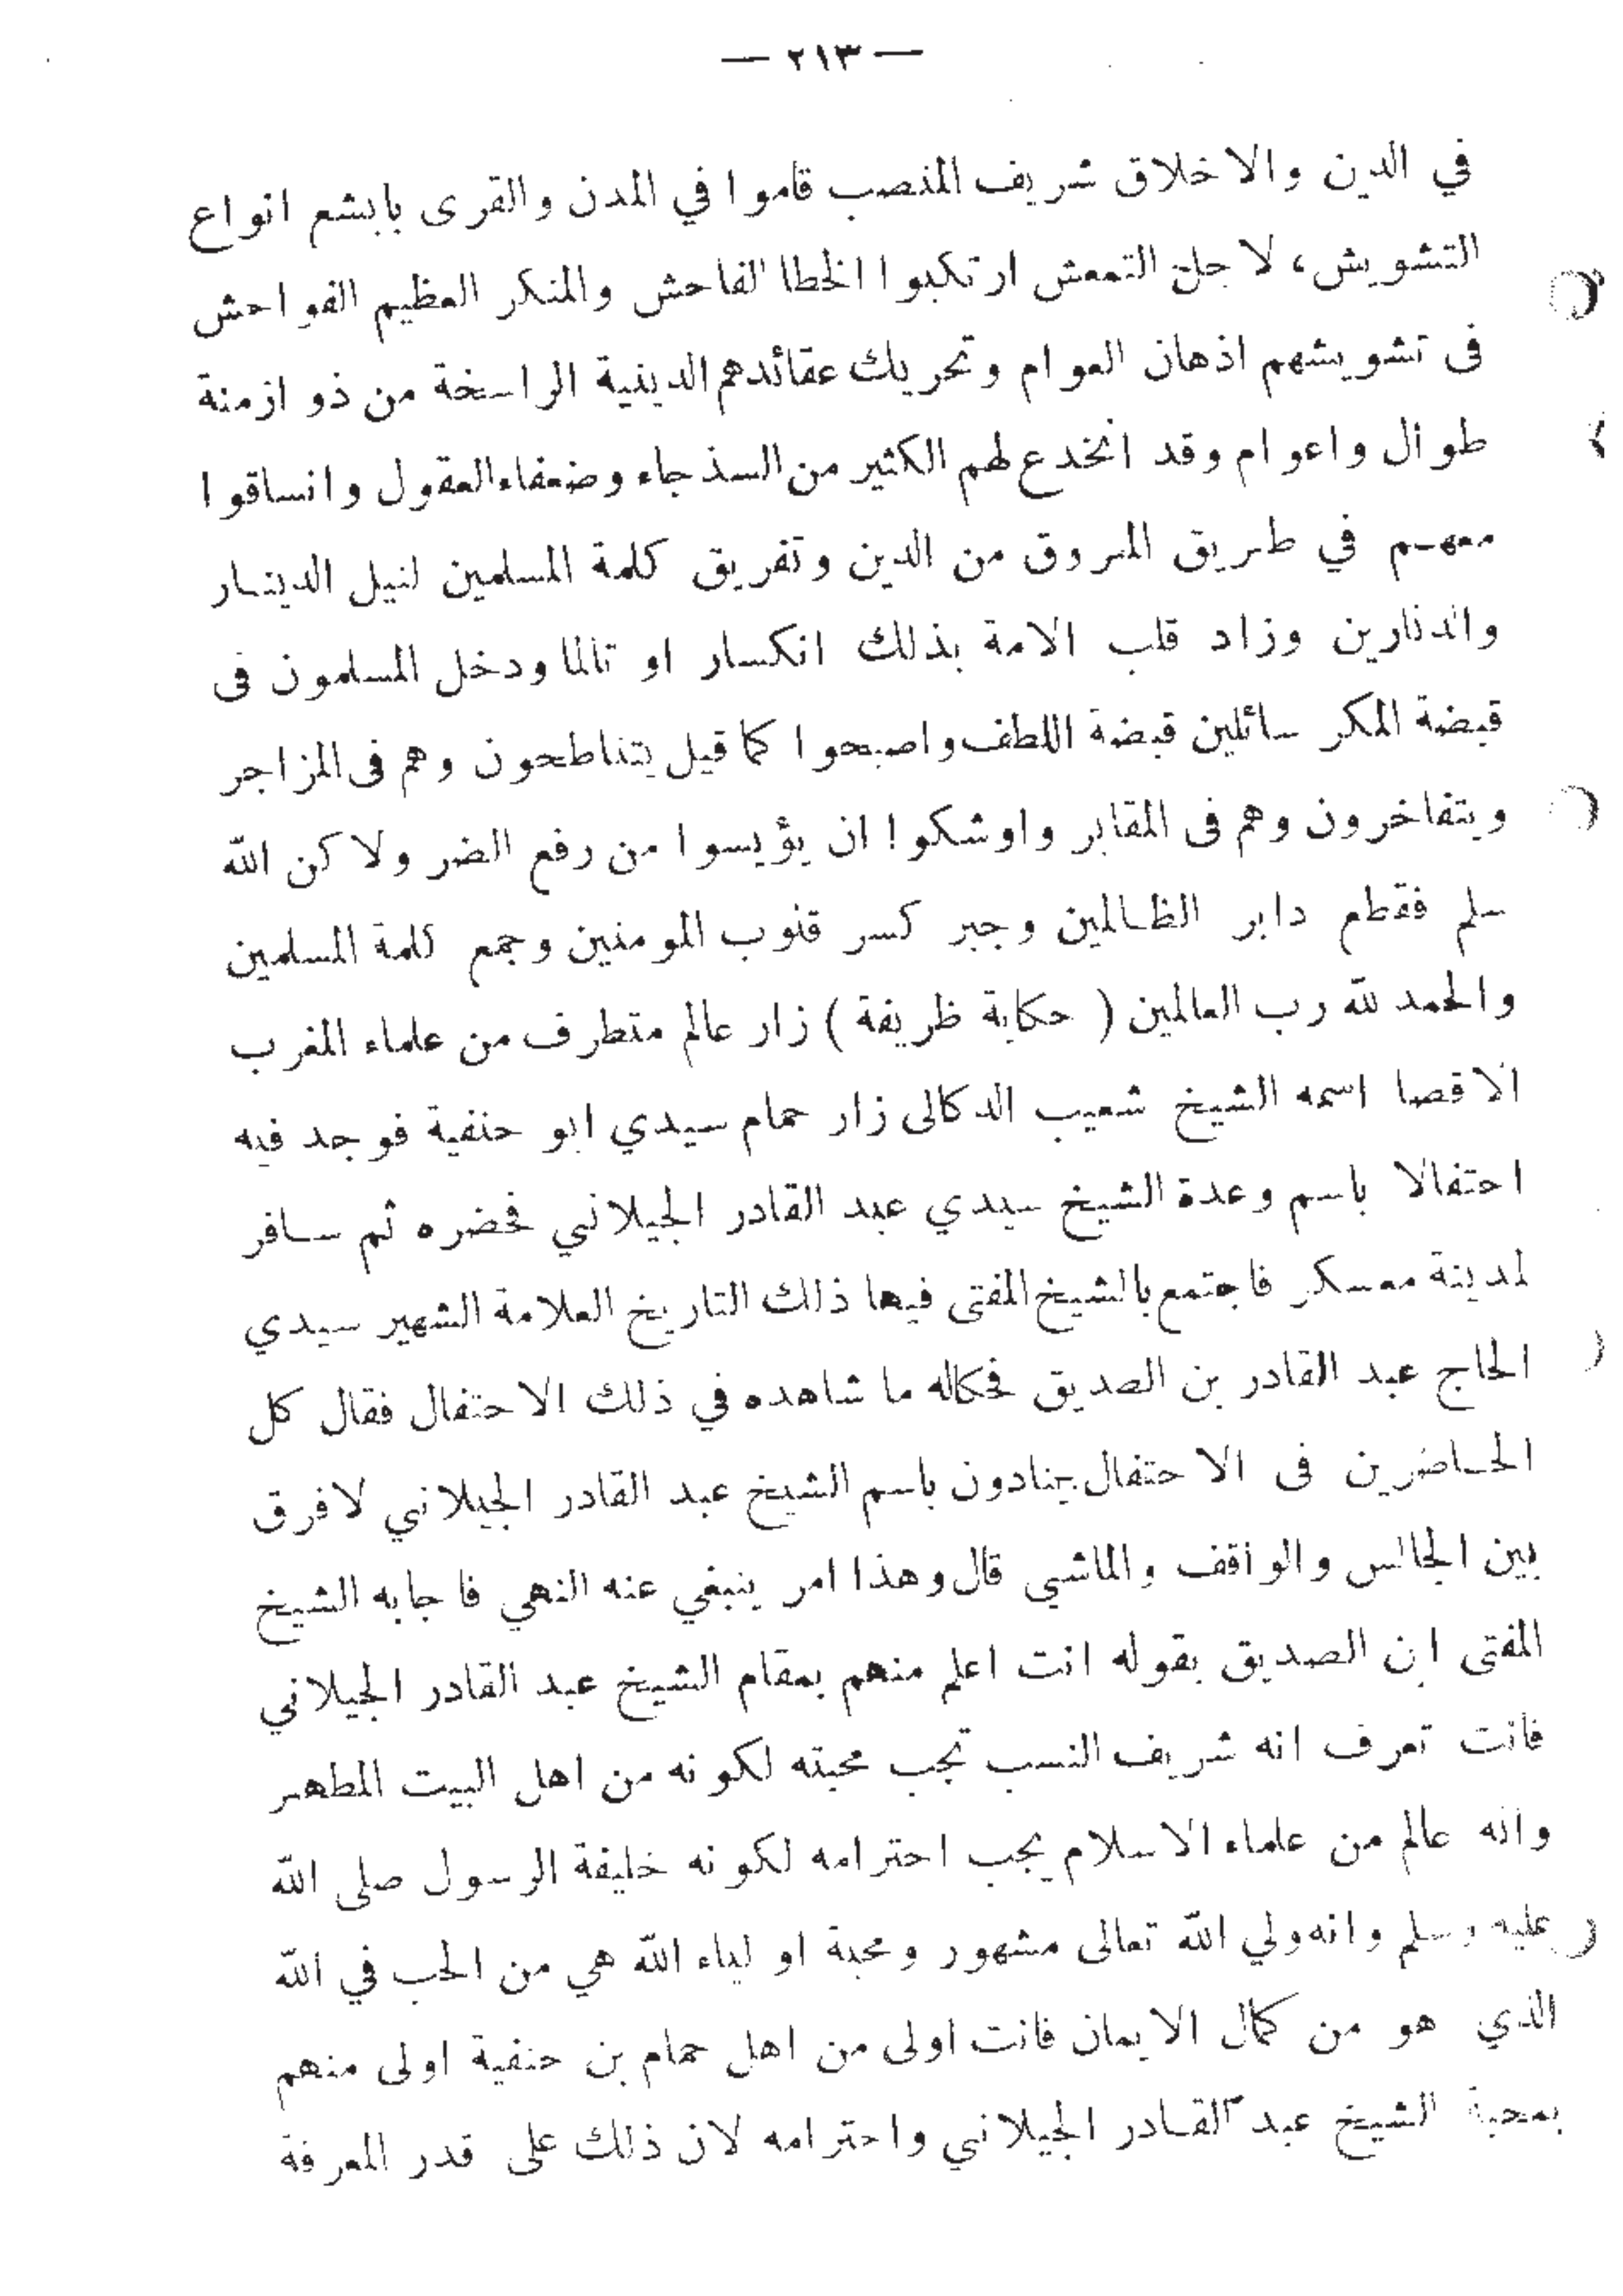 — ٢١٣ —
في الدين والاخلاق شريف المنصب قاموا في المدن والقرى بابشع انواع
التشويش، لاجل التمعش ارتكبوا الخطا الفاحش والمنكر العظيم الفواحش
فى تشويشهم اذهان العوام وتحريك عقائدهم الدينية الراسخة من ذو ازمنة
طوال واعوام وقد انخدع لهم الكثير من السذجاء وضعفاء العقول وانساقوا
معهم في طريق المروق من الدين وتفريق كلمة المسلمين لنيل الدينار
والدنارين وزاد قلب الامة بذلك انكسار او تالما ودخل المسلمون فى
قبضة المكر سائلين قبضة اللطف واصبحوا كما قيل يتناطحون وهم فى المزاجر
ويتفاخرون وهم فى المقابر واوشكوا ان يؤيسوا من رفع الضر ولاكن الله
سلم فقطع دابر الظالمين وجبر كسر قلوب المومنين وجمع كلمة المسلمين
والحمد لله رب العالمين ( حكاية ظريفة ) زار عالم متطرف من علماء المغرب
الاقصا اسمه الشيخ شعيب الدكالى زار حمام سيدي ابو حنفية فوجد فيه
احتفالا باسم وعدة الشيخ سيدي عبد القادر الجيلاني فحضره ثم سافر
لمدينة معسكر فاجتمع بالشيخ المفتى فيها ذلك التاريخ العلامة الشهير سيدي
الحاج عبد القادر بن الصديق فحكاله ما شاهده في ذلك الاحتفال فقال كل
الحاضرين فى الاحتفال ينادون باسم الشيخ عبد القادر الجيلاني لافرق
بين الجالس والواقف والماشي قال وهذا امر ينبغي عنه النهي فاجابه الشيخ
المفتى ابن الصديق بقوله انت اعلم منهم بمقام الشيخ عبد القادر الجيلاني
فانت تعرف انه شريف النسب تجب محبته لكونه من اهل البيت المطهر
وانه عالم من علماء الاسلام يجب احترامه لكونه خليفة الرسول صلى الله
عليه وسلم وانه ولي الله تعالى مشهور ومحبة اولياء الله هي من الحب في الله
الذي هو من كمال الايمان فانت اولى من اهل حمام بن حنفية اولى منهم
بمحبة الشيخ عبد القادر الجيلاني واحترامه لان ذلك على قدر المعرفة